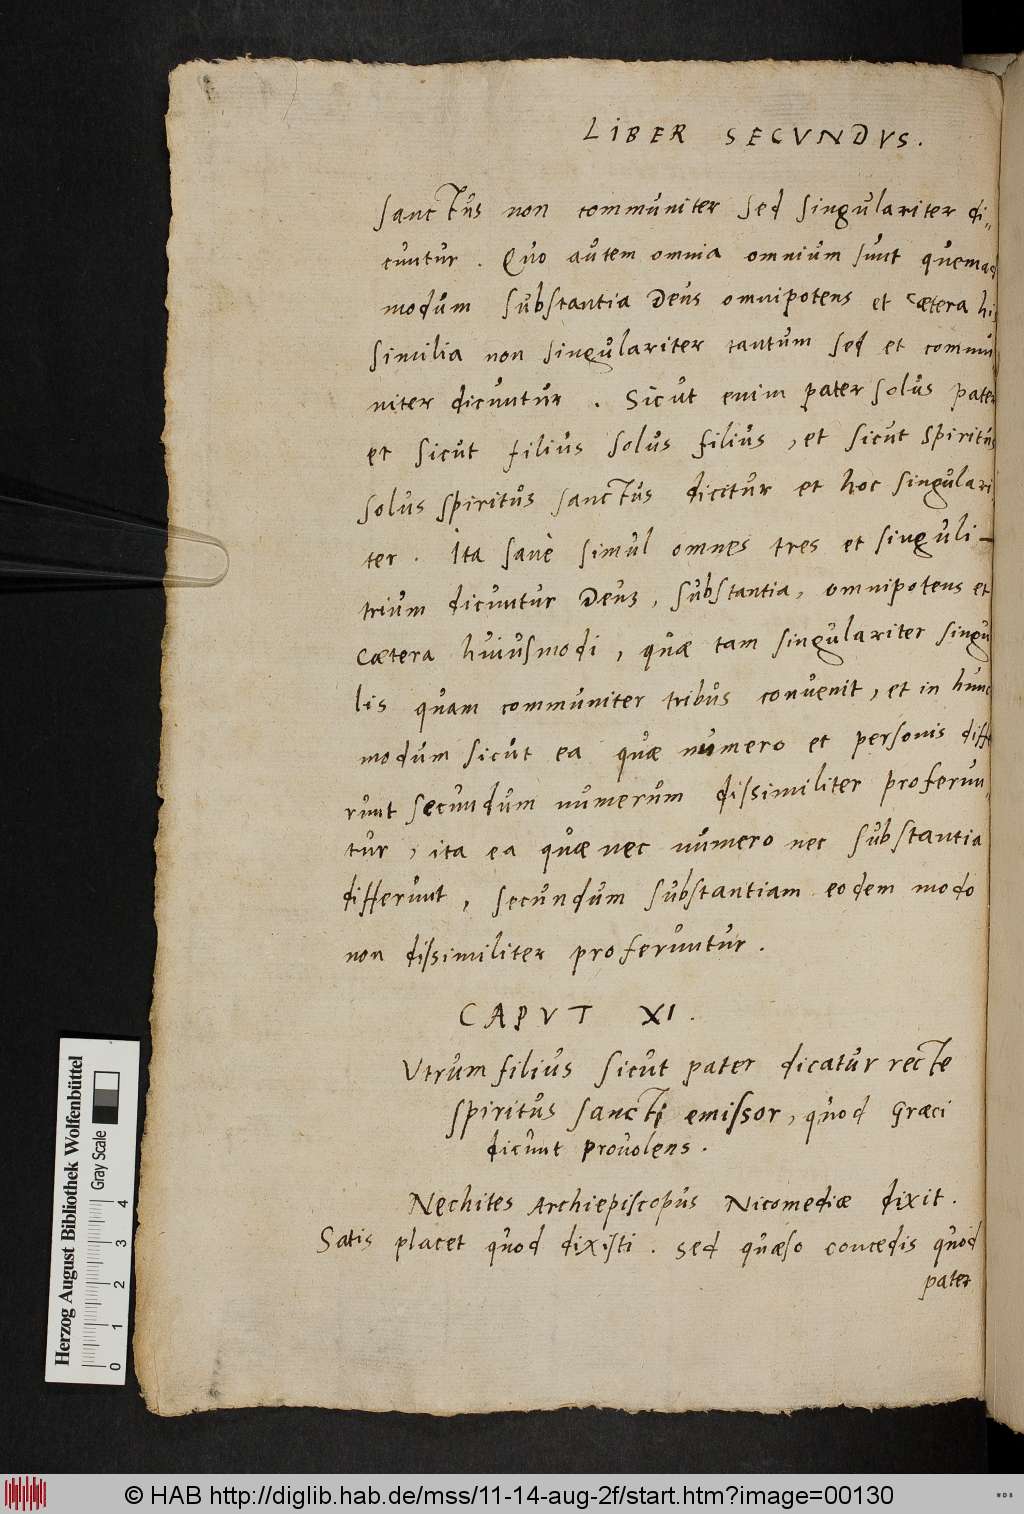 LIBER SECVNDVS.
sanctus non communiter sed singulariter di„
cuntur. Quo autem omnia omnium sunt quemad
modum substantia Deus omnipotens et cætera his
similia non singulariter tantum sed et commu
niter dicuntur. Sicut enim pater solus pater
et sicut filius solus filius, et sicut spiritus
solus spiritus sanctus dicitur et hoc singulari
ter. Ita sanè simul omnes tres et singuli
trium dicuntur Deus, substantia, omnipotens et
cætera huiusmodi, quæ tam singulariter singu
lis quam communiter tribus convenit, et in hunc
modum sicut ea quæ numero et personis diffe
runt secundum numerum dissimiliter proferun„
tur, ita ea quæ nec numero nec substantia
differunt, secundum substantiam eodem modo
non dissimiliter proferuntur.
CAPVT XI.
Vtrum filius sicut pater dicatur recte
spiritus sancti emissor, quod Græci
dicunt provolens.
Nechites Archiepiscopus Nicomediæ dixit.
Satis placet quod dixisti. sed quæso concedis quod
pater
Herzog August Bibliothek Wolfenbüttel
Gray Scale
0 1 2 3 4
© HAB http://diglib.hab.de/mss/11-14-aug-2f/start.htm?image=00130